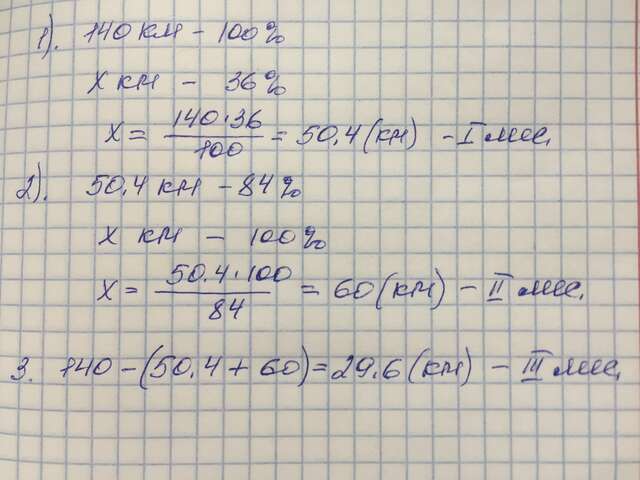 1). 140 км - 100%
х км - 36%
х = 140·36 / 100 = 50,4 (км) - I мес.
2). 50,4 км - 84%
х км - 100%
х = 50,4·100 / 84 = 60 (км) - II мес.
3. 140 - (50,4 + 60) = 29,6 (км) - III мес.